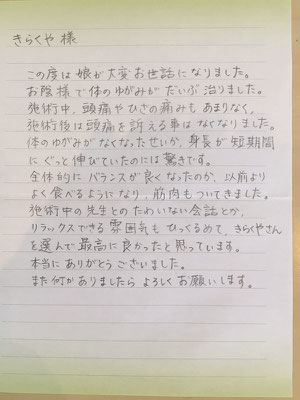 きらくや 様
この度は娘が大変お世話になりました。
お陰様で体のゆがみがだいぶ治りました。
施術中、頭痛やひざの痛みもあまりなく、
施術後は頭痛を訴える事はなくなりました。
体のゆがみがなくなったせいか、身長が短期間
にぐっと伸びていたのには驚きです。
全体的にバランスが良くなったのか、以前より
よく食べるようになり、筋肉もついてきました。
施術中の先生とのたわいない会話とか、
リラックスできる雰囲気もひっくるめて、きらくやさん
を選んで最高に良かったと思っています。
本当にありがとうございました。
また何かありましたらよろしくお願いします。